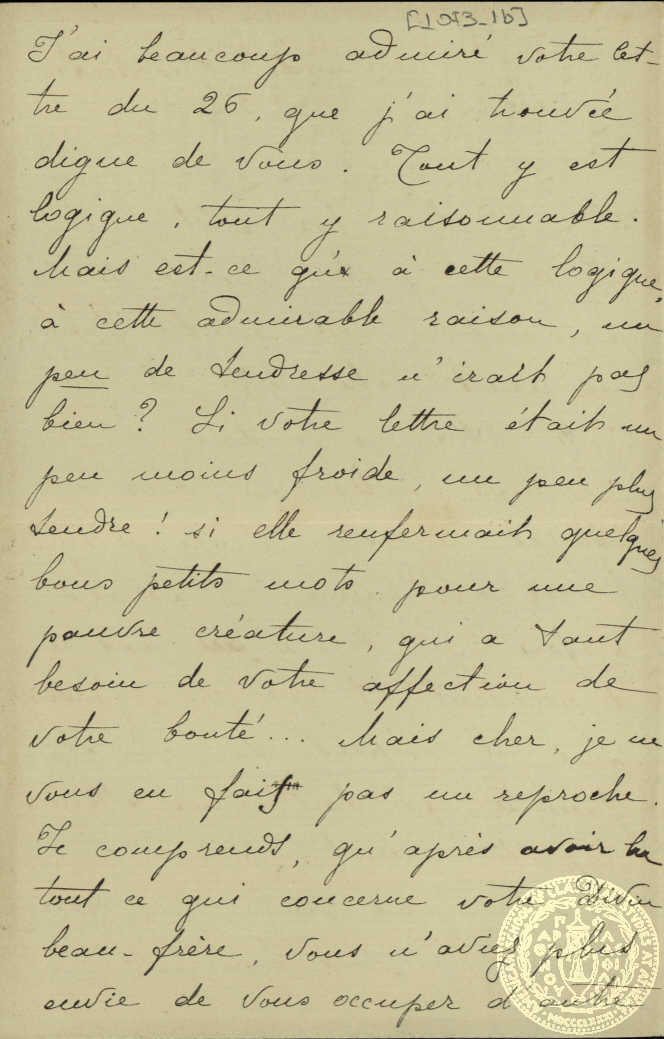 [1073-1b]
J'ai beaucoup admiré votre let-
tre du 26, que j'ai trouvée
digne de vous. Tout y est
logique, tout y raisonnable.
Mais est-ce qu'x à cette logique,
à cette admirable raison, un
peu de tendresse n'irait pas
bien? Si votre lettre était un
peu moins froide, un peu plus
tendre! si elle renfermait quelques
bons petits mots pour une
pauvre créature, qui a tant
besoin de votre affection de
votre bonté... Mais cher, je ne
vous en fais pas un reproche.
Je comprends, qu'après avoir lu
tout ce qui concerne votre Divin
beau-frère, vous n'aviez plus
envie de vous occuper d'autre